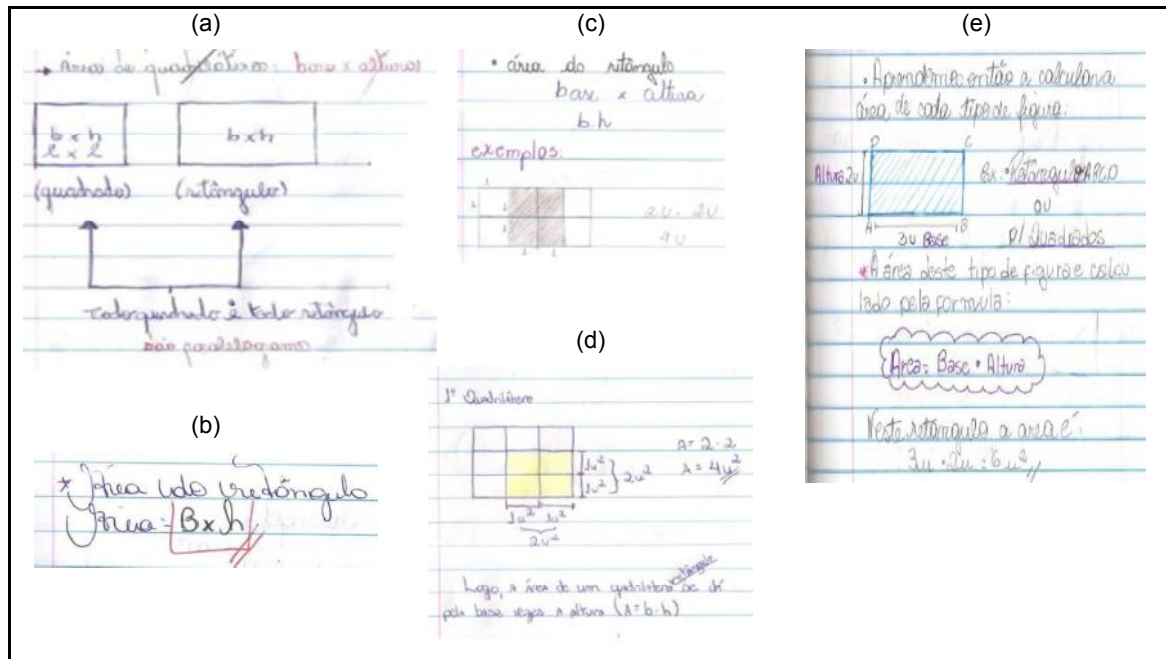 (a)
→ Áreas de quadriláteros: base x altura
b x h
l x l
b x h
(quadrado) (retângulo)
Todo quadrado é todo retângulo
são paralelogramo
(b)
* Área do retângulo
Área = B x h
(c)
• área do retângulo
base x altura
b.h
exemplos:
1 1
1 1
1
1 1
2u . 2u
4u
(d)
1º Quadrilátero
1u²
1u²
2u²
1u² 1u²
2u²
A = 2 . 2
A = 4u²
retângulo
Logo, a área de um quadrilátero se dá
pela base vezes a altura (A = b.h)
(e)
• Aprendemos então a calcular a
área de cada tipo de figura:
D C
Altura 2u
A B
3u Base
Ex: Retângulo ABCD
ou
p/ Quadrados
* A área deste tipo de figura e calcu
lado pela formula:
Área = Base • Altura
Neste retângulo a area é:
3u . 2u = 6u²